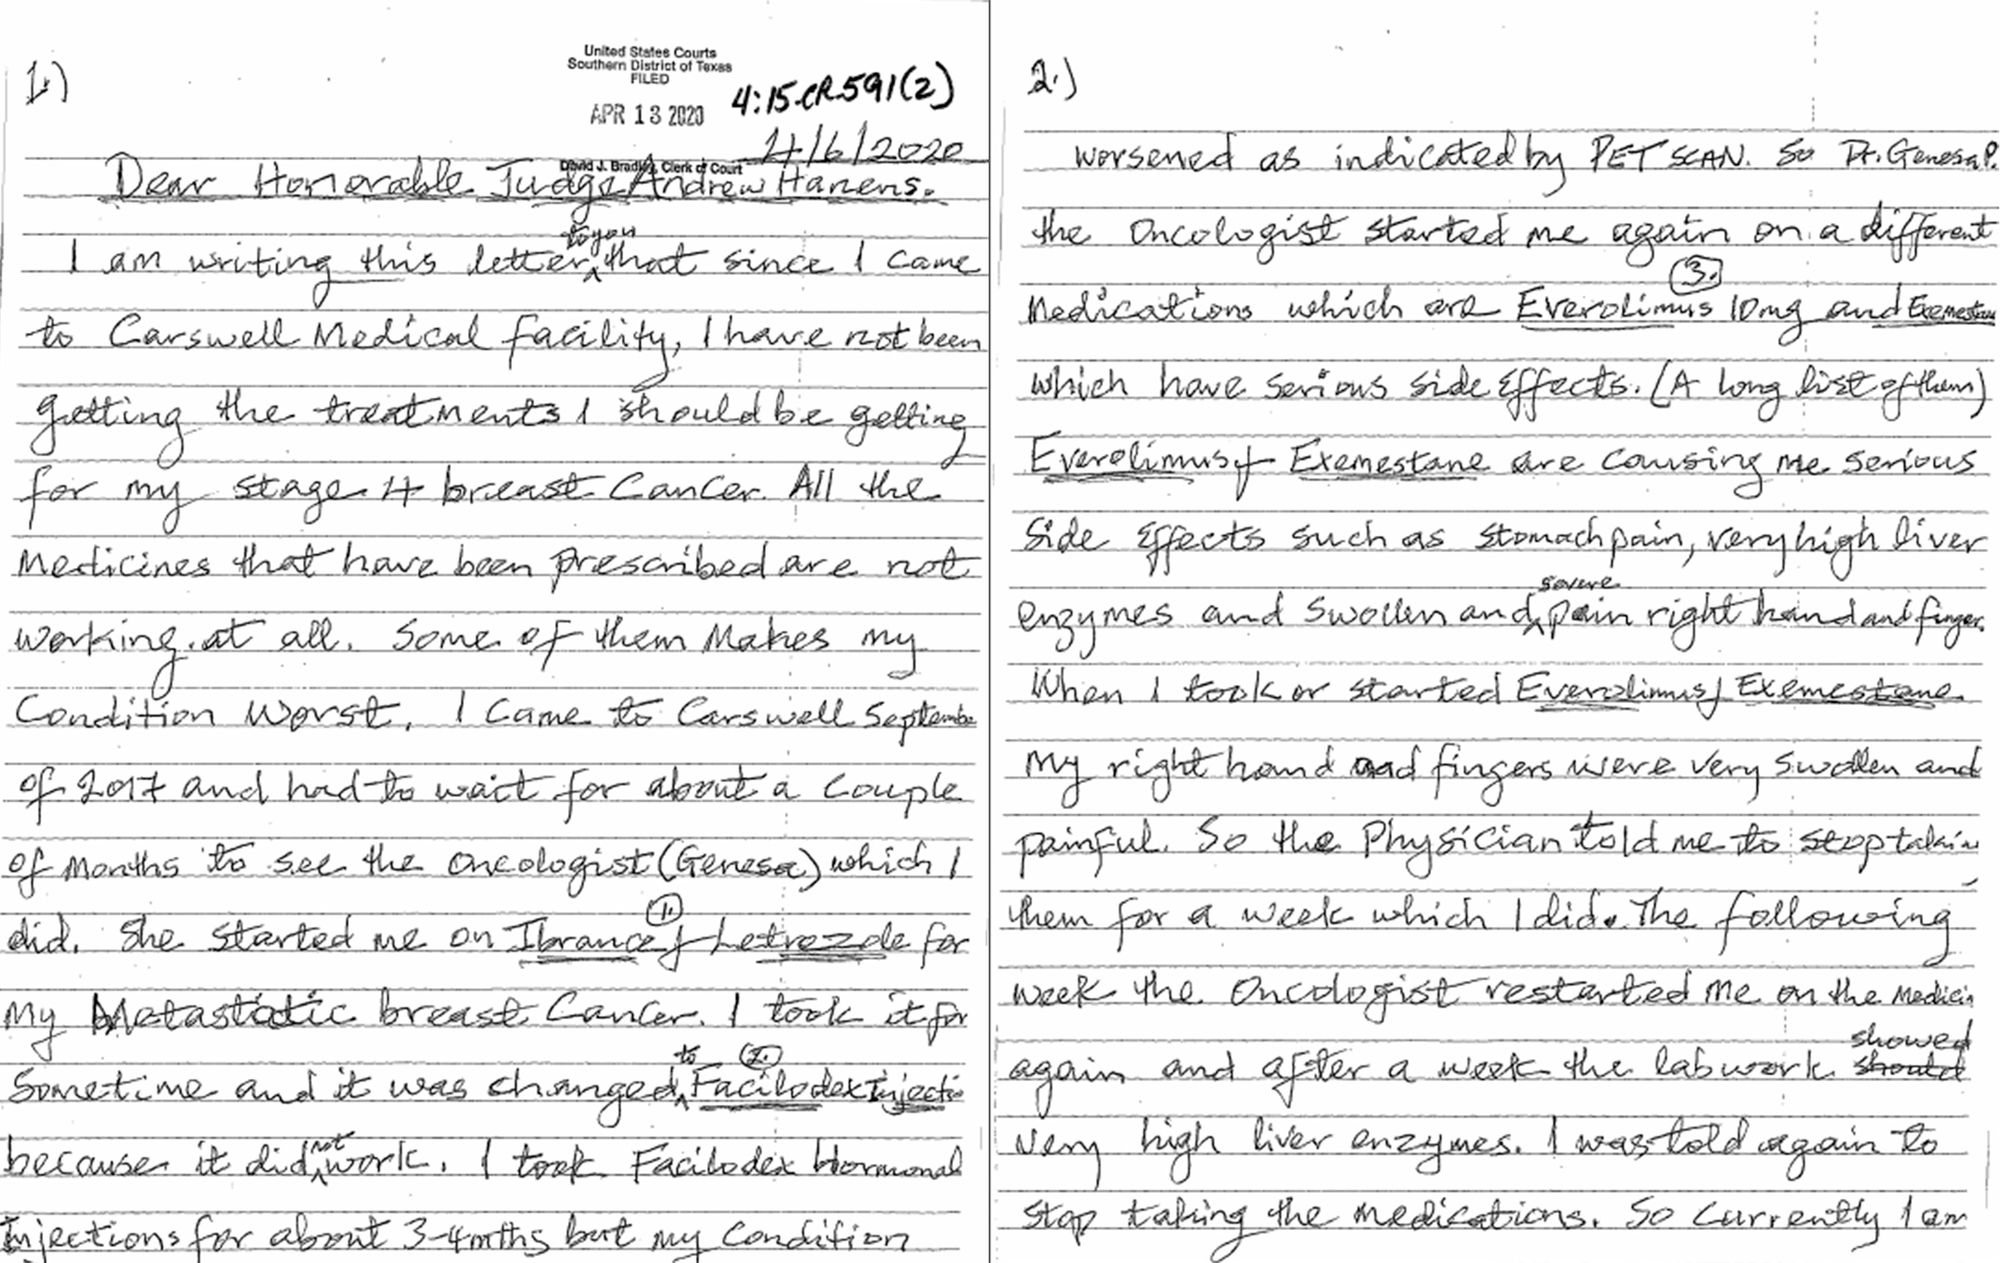 1.)
United States Courts
Southern District of Texas
FILED
APR 13 2020
4:15-CR-591(2)
4/6/2020
David J. Bradley, Clerk of Court
Dear Honorable Judge Andrew Hanens.
to you
I am writing this letter ^ that since I came
to Carswell Medical facility, I have not been
getting the treatments I should be getting
for my stage 4 breast Cancer. All the
Medicines that have been prescribed are not
working at all. Some of them Makes my
Condition Worst. I Came to Carswell Septembe
of 2017 and had to wait for about a couple
of Months to see the Oncologist (Genesa) which I
1.
did. She started me on Ibrance & Letrozole for
My Metastatic breast Cancer. I took it for
to 2.
Sometime and it was changed ^ Facilodex Injecti
not
because it did ^ work. I took Facilodex Hormonal
Injections for about 3-4mths but my Condition
2.)
worsened as indicated by PET SCAN. So Dr. Genesa P.
the Oncologist started me again on a different
3.
Medications which are Everolimus 10mg and Exemestane
which have serious side Effects. (A long list of them)
Everolimus & Exemestane are causing me serious
Side Effects such as stomach pain, very high liver
severe
enzymes and Swollen and ^ pain right hand and finger.
When I took or started Everolimus & Exemestane
My right hand and fingers were very swollen and
painful. So the Physician told me to stop takin
them for a week which I did. The following
week the Oncologist restarted me on the Medicin
showed
again and after a week the labwork should
very high liver enzymes. I was told again to
stop taking the medications. So Currently I am